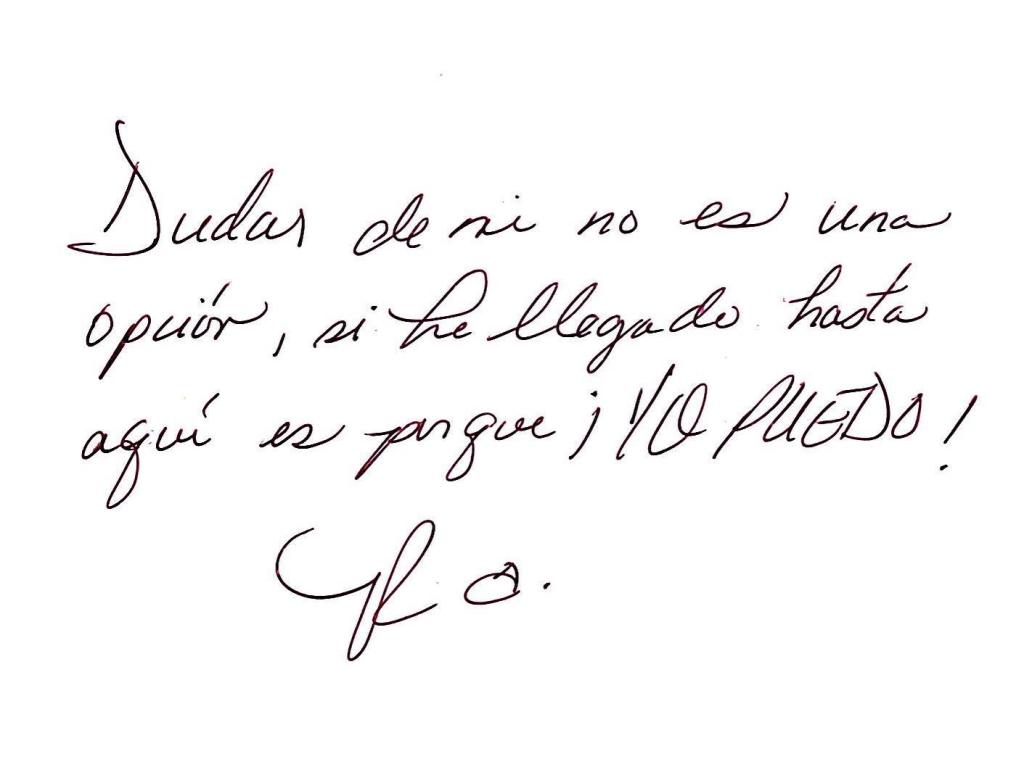 Dudar de mi no es una
opción, si he llegado hasta
aquí es porque ¡YO PUEDO!